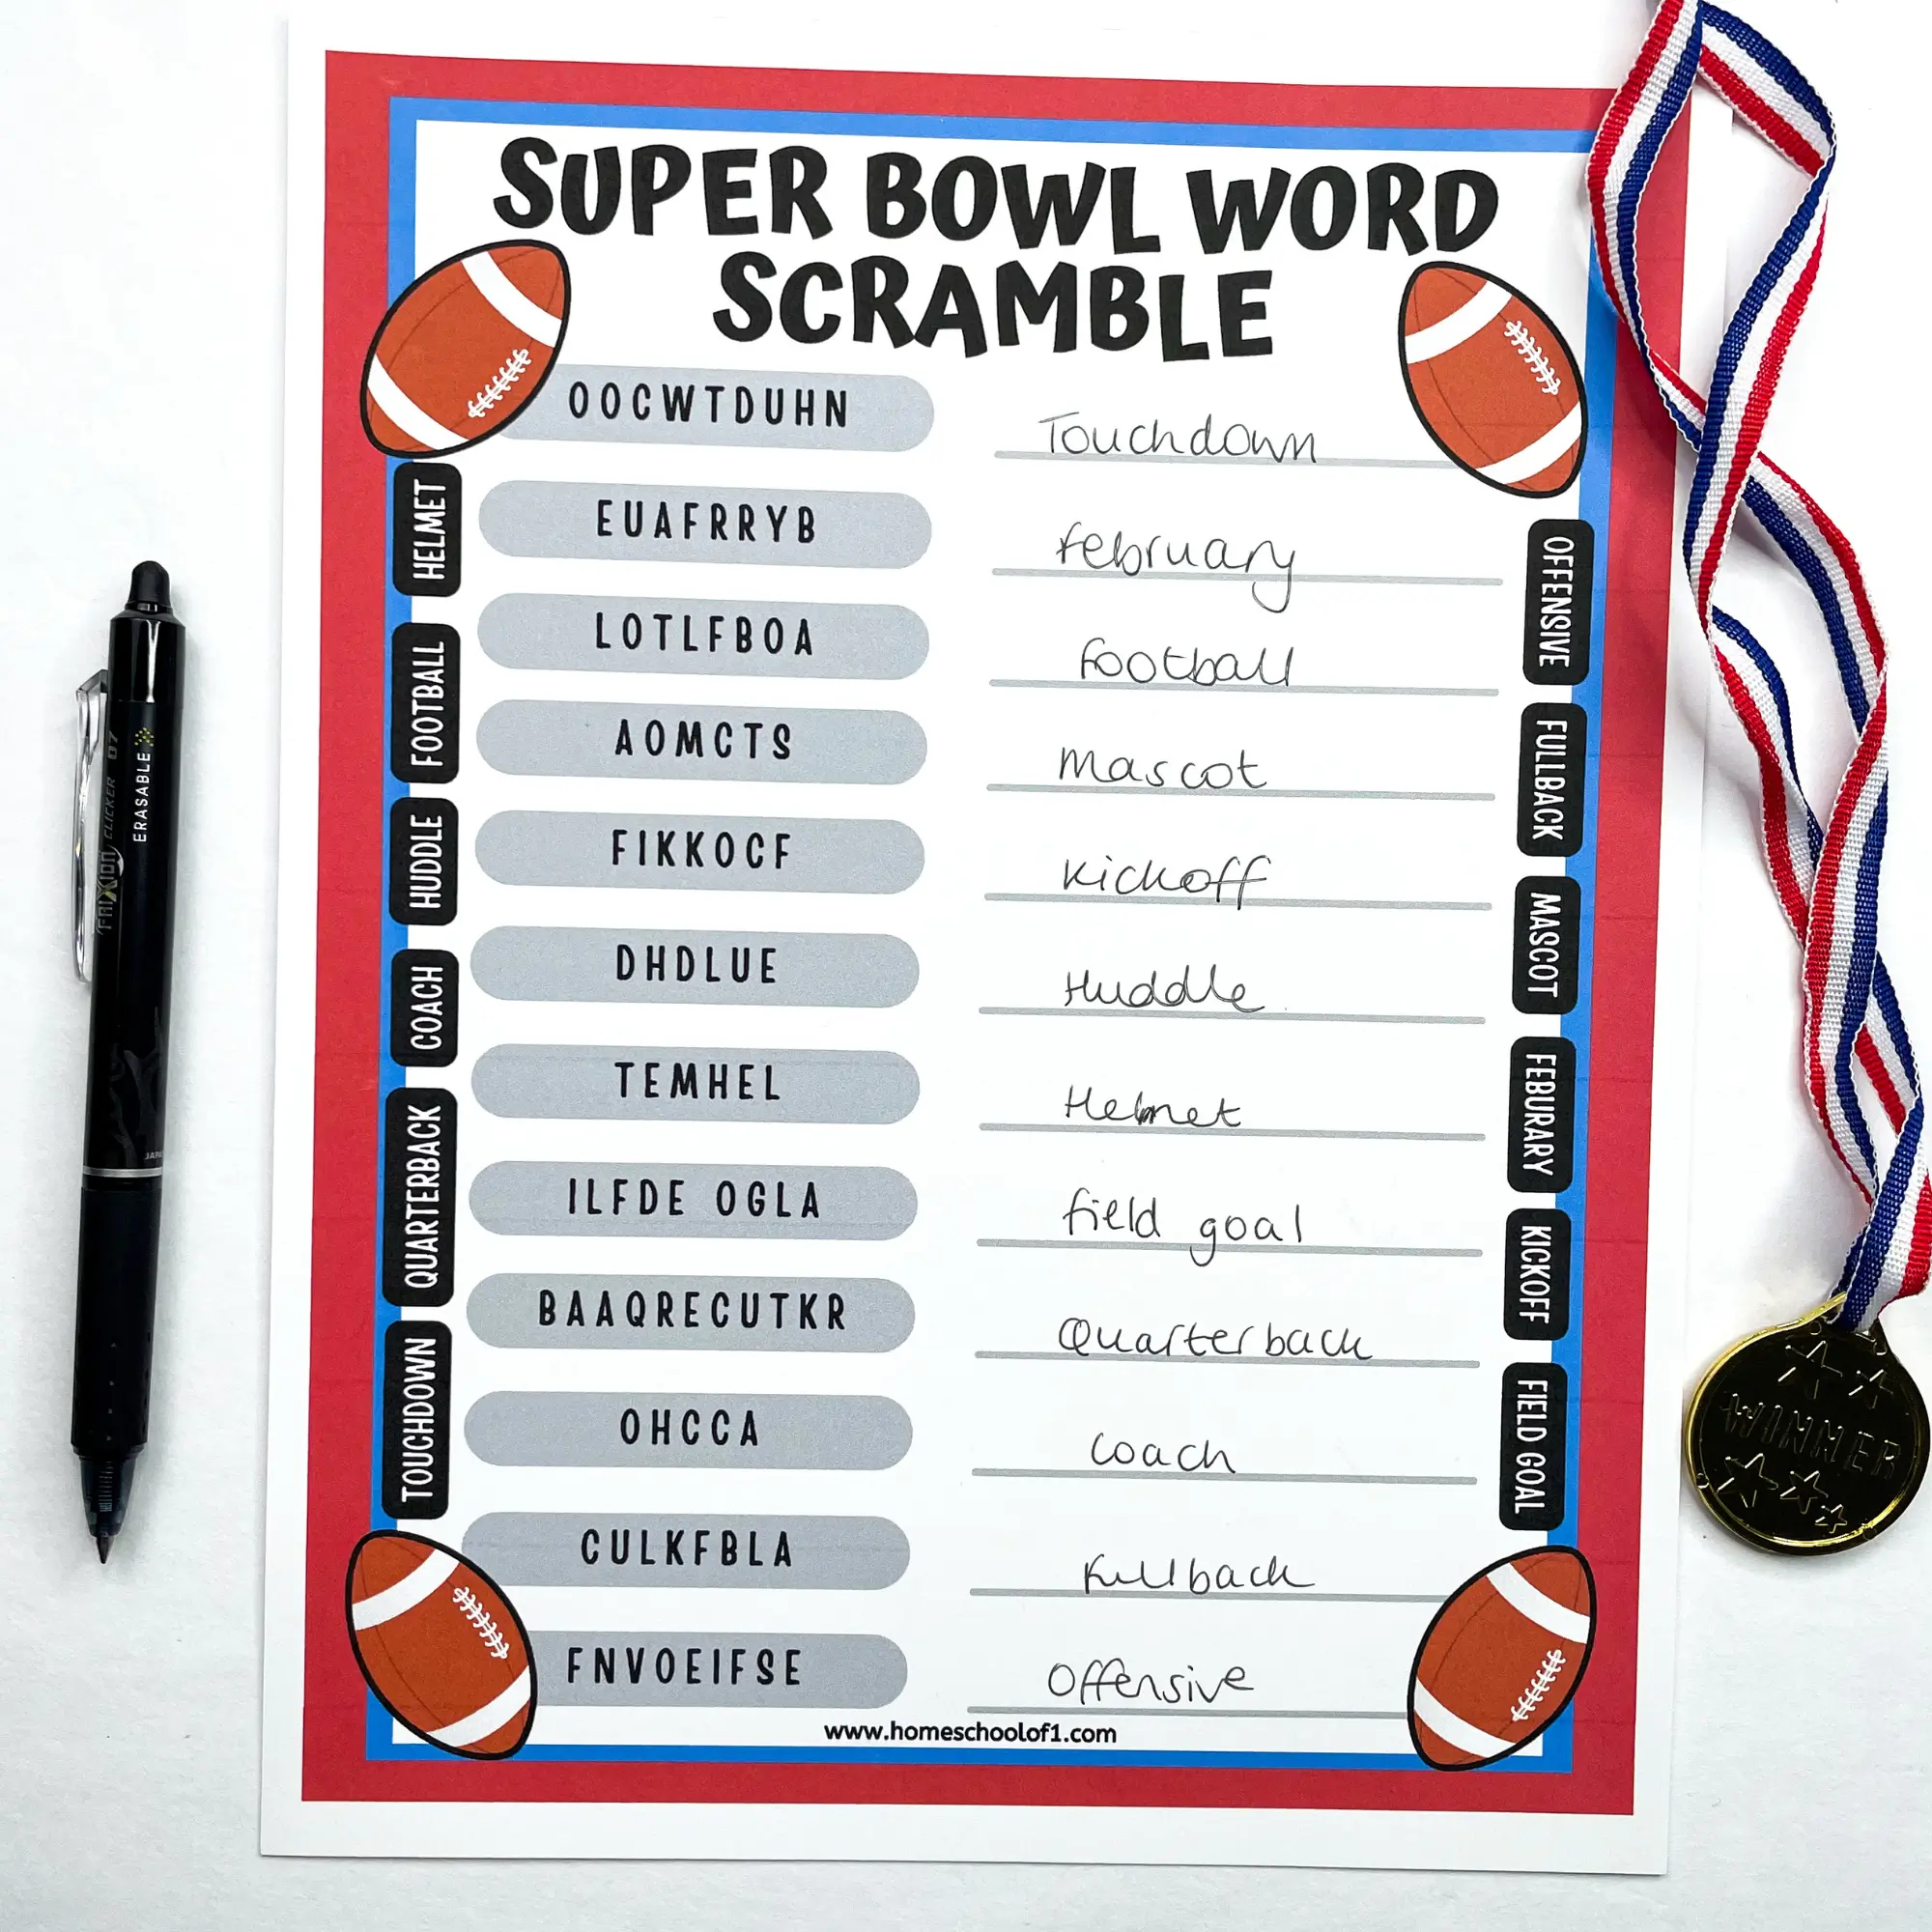 SUPER BOWL WORD
SCRAMBLE
OOCWTDUHN
Touchdown
EUAFRRYB
february
LOTLFBOA
football
AOMCTS
Mascot
FIKKOCF
kickoff
DHDLUE
Huddle
TEMHEL
Helmet
ILFDE OGLA
field goal
BAAQRECUTKR
Quarterback
OHCCA
Coach
CULKFBLA
fullback
FNVOEIFSE
Offensive
www.homeschoolof1.com
HELMET
FOOTBALL
HUDDLE
COACH
QUARTERBACK
TOUCHDOWN
OFFENSIVE
FULLBACK
MASCOT
FEBURARY
KICKOFF
FIELD GOAL
FRIXION CLICKER 07
ERASABLE
WINNER